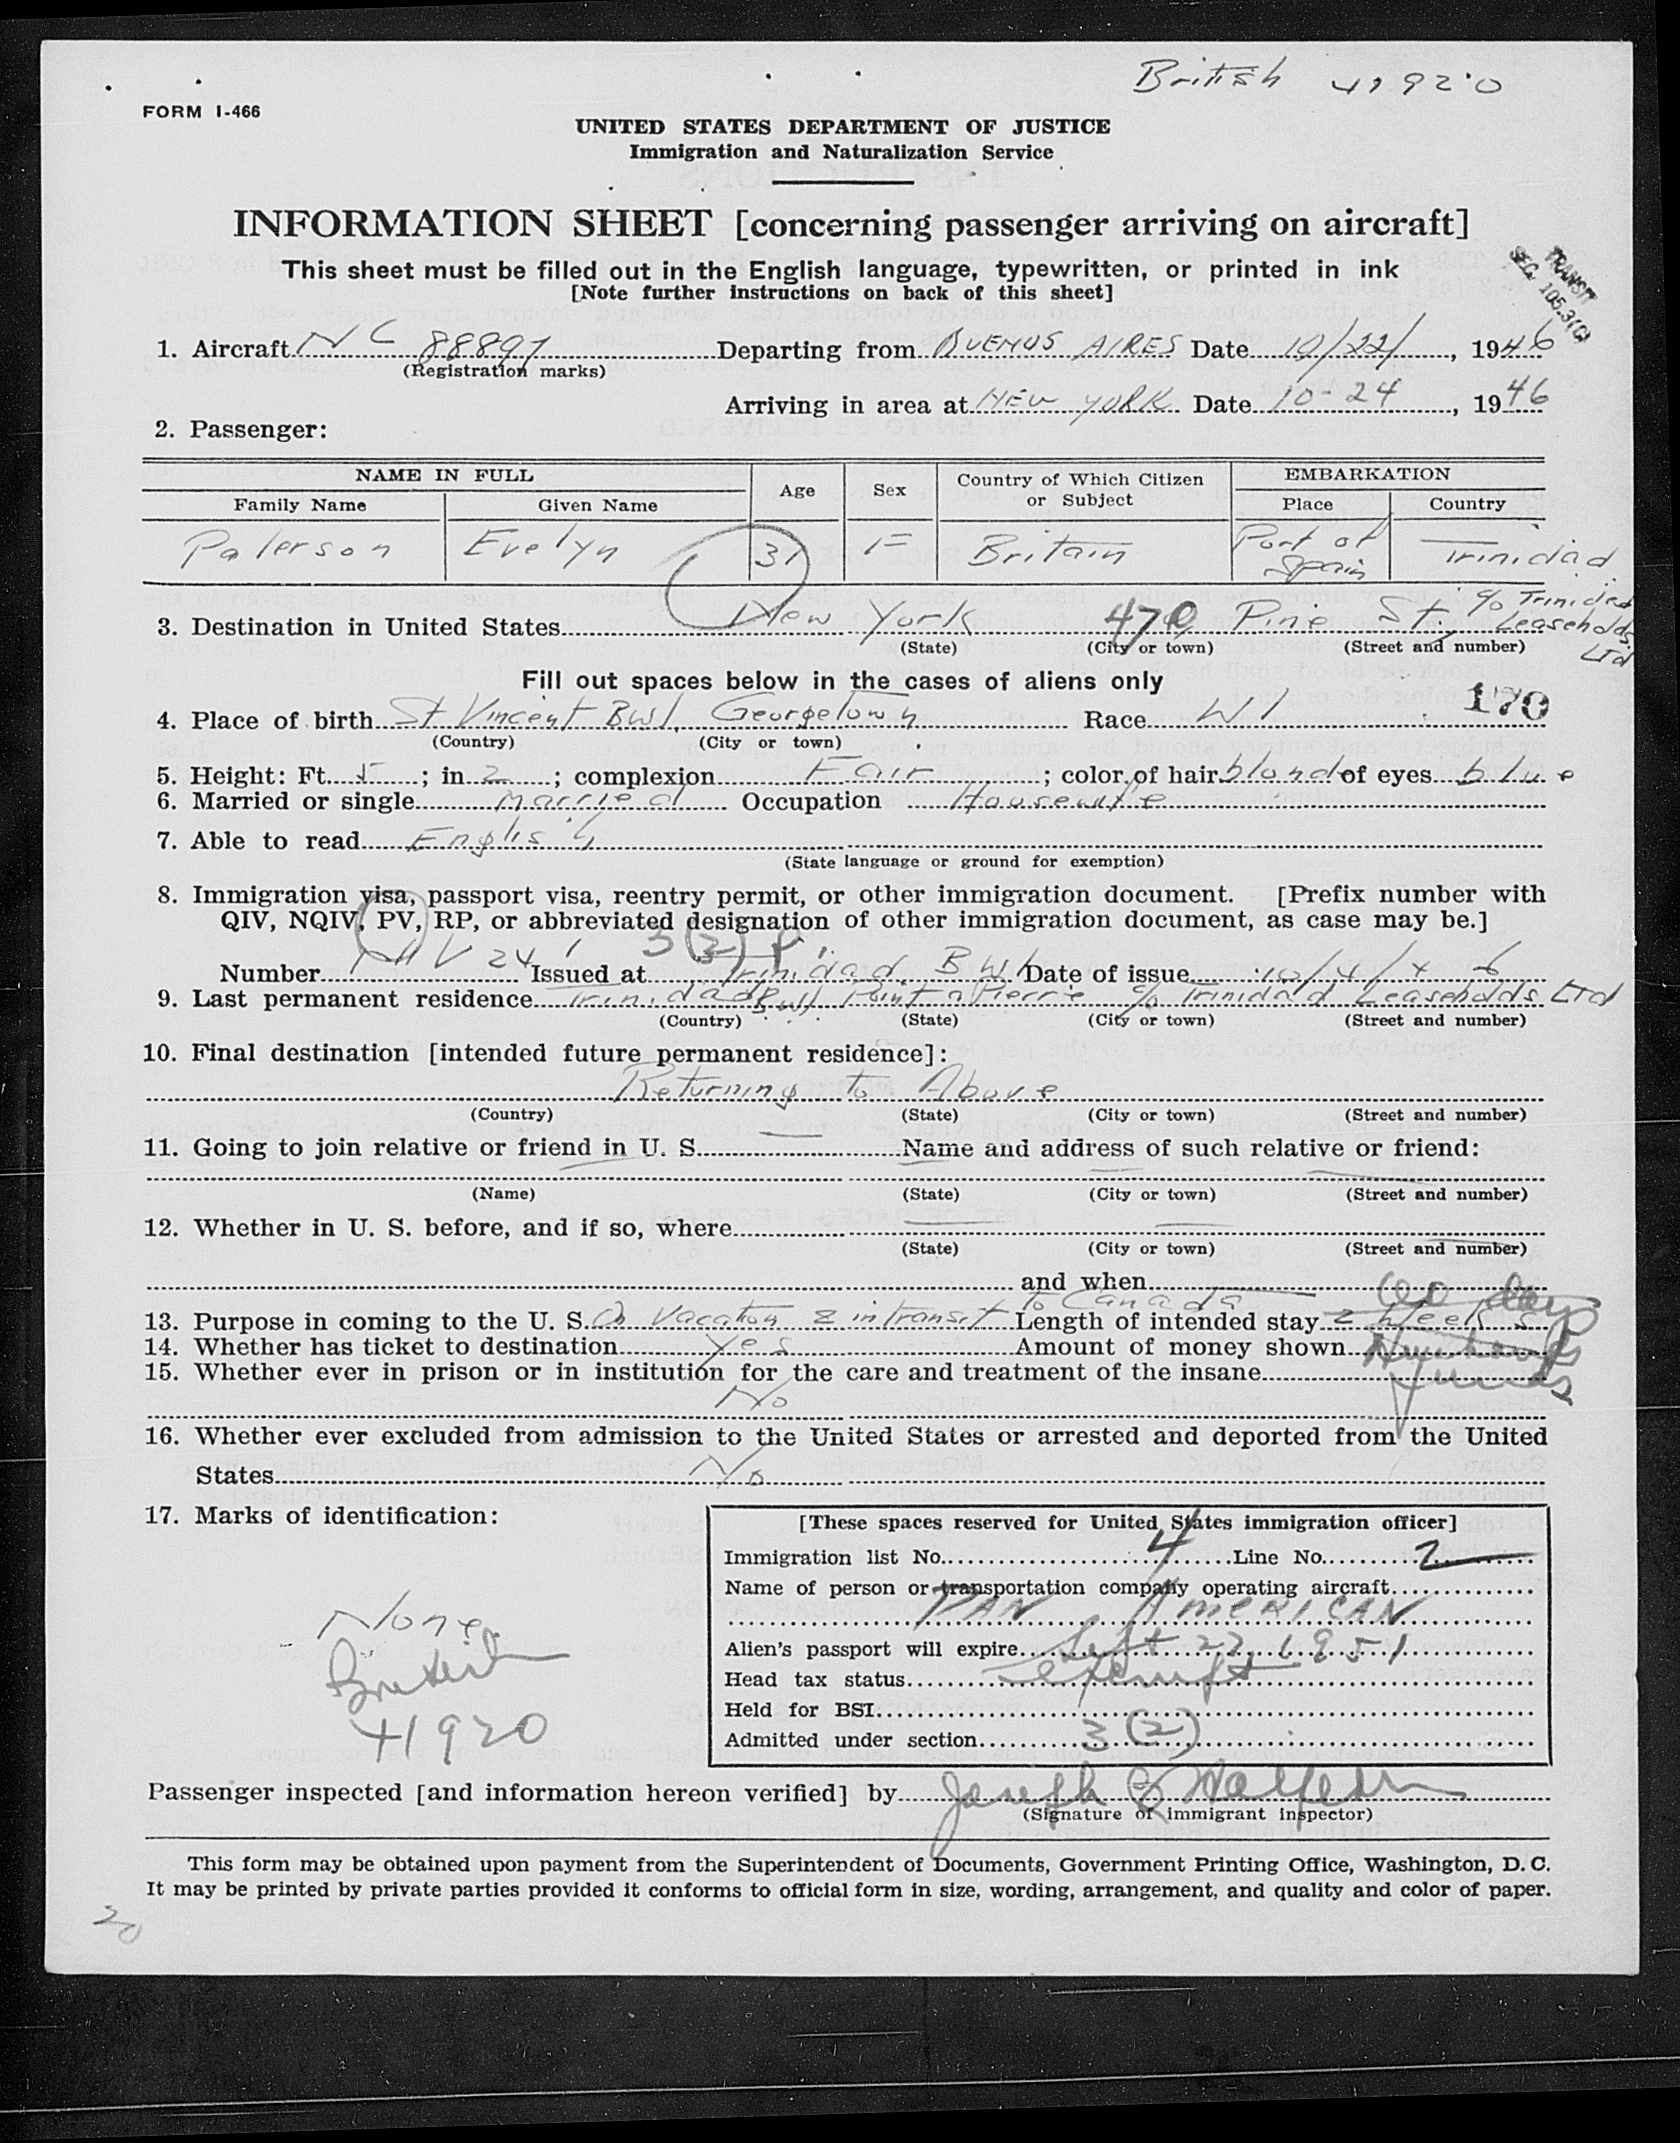 British 41920
FORM I-466
UNITED STATES DEPARTMENT OF JUSTICE
Immigration and Naturalization Service
INFORMATION SHEET [concerning passenger arriving on aircraft]
This sheet must be filled out in the English language, typewritten, or printed in ink
[Note further instructions on back of this sheet]
TRANSIT
SEC. 105.3(C)
1. Aircraft NC 88897 Departing from BUENOS AIRES Date 10/22/, 1946
(Registration marks)
Arriving in area at NEW YORK Date 10-24, 1946
2. Passenger:
NAME IN FULL Age Sex Country of Which Citizen or Subject EMBARKATION
Family Name Given Name Place Country
Paterson Evelyn 31 F Britain Port of Spain Trinidad
3. Destination in United States New York 470 Pine St. c/o Trinidad Leaseholds Ltd
(State) (City or town) (Street and number)
Fill out spaces below in the cases of aliens only
170
4. Place of birth St Vincent BWI, Georgetown Race WI
(Country) (City or town)
5. Height: Ft. 5; in 2; complexion Fair; color of hair blonde of eyes blue
6. Married or single Married Occupation Housewife
7. Able to read English
(State language or ground for exemption)
8. Immigration visa, passport visa, reentry permit, or other immigration document. [Prefix number with
QIV, NQIV, PV, RP, or abbreviated designation of other immigration document, as case may be.]
3(2)
Number V 241 Issued at Trinidad BWI Date of issue 10/4/46
9. Last permanent residence Trinidad BWI Point a Pierre c/o Trinidad Leaseholds Ltd
(Country) (State) (City or town) (Street and number)
10. Final destination [intended future permanent residence]:
Returning to Above
(Country) (State) (City or town) (Street and number)
11. Going to join relative or friend in U. S. Name and address of such relative or friend:
(Name) (State) (City or town) (Street and number)
12. Whether in U. S. before, and if so, where
(State) (City or town) (Street and number)
and when
60 days
13. Purpose in coming to the U. S. On Vacation & intransit to Canada Length of intended stay 2 Weeks
14. Whether has ticket to destination Yes Amount of money shown
funds
15. Whether ever in prison or in institution for the care and treatment of the insane
No
16. Whether ever excluded from admission to the United States or arrested and deported from the United
States No
17. Marks of identification:
None
British
41920
[These spaces reserved for United States immigration officer]
Immigration list No. 4 Line No. 2
Name of person or transportation company operating aircraft
PAN AMERICAN
Alien's passport will expire Sept 22, 1951
Head tax status exempt
Held for BSI
Admitted under section 3(2)
Passenger inspected [and information hereon verified] by Joseph
(Signature of immigrant inspector)
This form may be obtained upon payment from the Superintendent of Documents, Government Printing Office, Washington, D. C.
It may be printed by private parties provided it conforms to official form in size, wording, arrangement, and quality and color of paper.
20